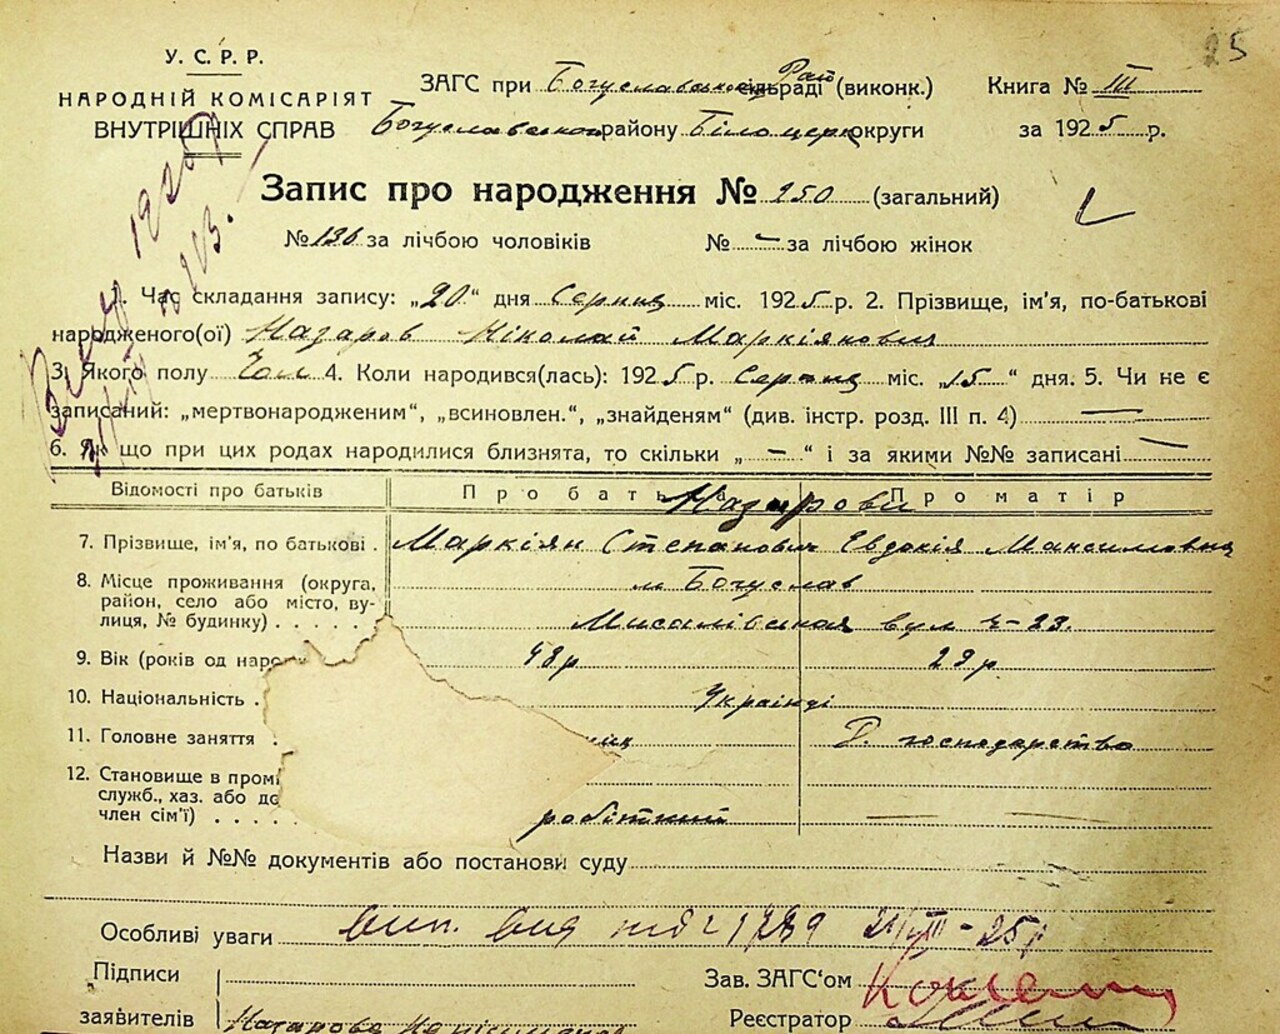 25
У. С. Р. Р.
НАРОДНІЙ КОМІСАРІЯТ
ВНУТРІШНІХ СПРАВ
ЗАГС при Богуславському Рай сільраді (виконк.)
Богуславського району Білоцерк округи
Книга № III
за 1925 р.
Запис про народження № 250 (загальний)
№ 136 за лічбою чоловіків № — за лічбою жінок
1. Час складання запису: „20" дня Серпня міс. 1925 р. 2. Прізвище, ім'я, по-батькові
народженого(ої) Назаров Ніколай Маркіянович
3. Якого полу Чол 4. Коли народився(лась): 1925 р. Серпня міс. „15" дня. 5. Чи не є
записаний: „мертвонародженим", „всиновлен.", „знайденям" (див. інстр. розд. III п. 4) —
6. Як що при цих родах народилися близнята, то скільки „ — " і за якими №№ записані —
Відомості про батьків Про батька Про матір
Назарови
7. Прізвище, ім'я, по батькові . Маркіян Степанович Евдокія Максимовна
8. Місце проживання (округа, м Богуслав
район, село або місто, ву-
лиця, № будинку) . . . . . вул ч-23.
9. Вік (років од наро 48р 29р
10. Національність . Украінці
11. Головне заняття . ник Д. господарство
12. Становище в промі
служб., хаз. або до
член сім'ї) . . . . . робітник —
Назви й №№ документів або постанови суду
Особливі уваги вип. вид 21/VIII-25р
Підписи Зав. ЗАГС'ом
заявителів Назарова Реєстратор